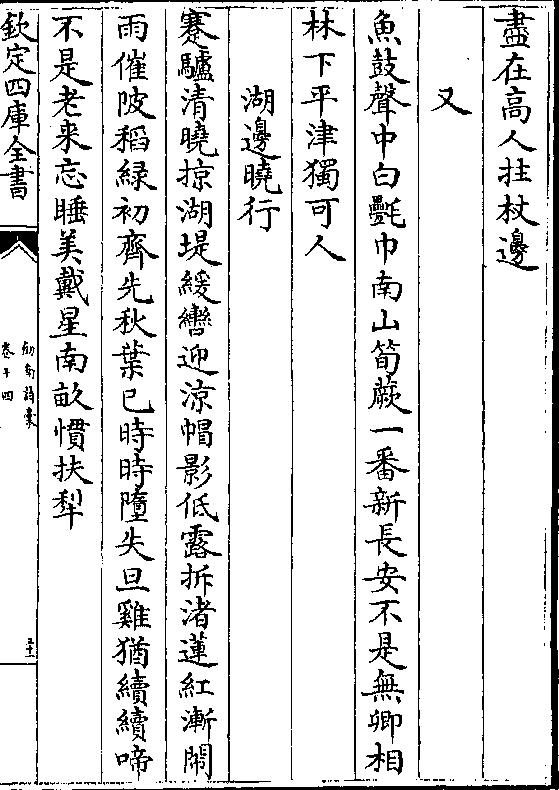 盡在高人拄杖邊
又
魚鼓聲中白㲲巾南山筍蕨一番新長安不是無卿相
林下平津獨可人
湖邊曉行
蹇驢清曉掠湖堤緩轡迎涼帽影低露拆渚蓮紅漸閙
雨催陂稻緑初齊先秋葉已時時墮失旦雞猶續續啼
不是老来忘睡美戴星南畝慣扶犁
欽定四庫全書
劎南詩稾